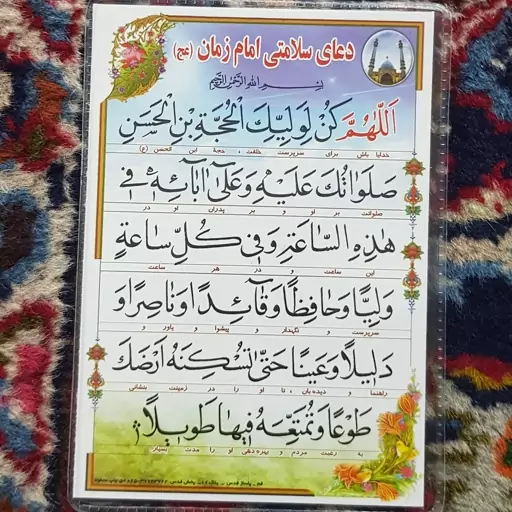 دعای سلامتی امام زمان (عج)
بسم الله الرحمن الرحیم
اَللّٰهُمَّ كُنْ لِوَلِيِّكَ الْحُجَّةِ بْنِ الْحَسَنِ
خدایا باش برای سرپرست خلقت ، حجة ابن الحسن (ع)
صَلَوَاتُكَ عَلَيْهِ وَعَلىٰ آبَائِهِ فِي
صلواتت بر او و بر پدران او در
هٰذِهِ السَّاعَةِ وَفِي كُلِّ سَاعَةٍ
این ساعت و در هر ساعت
وَلِيًّا وَحَافِظًا وَقَآئِدًا وَنَاصِرًا وَ
سرپرست و نگهدار و پیشوا و یاور و
دَلِيلًا وَعَيْنًا حَتّٰى تُسْكِنَهُ أَرْضَكَ
راهنما و دیده بان ، تا او را در زمینت بنشانی
طَوْعًا وَتُمَتِّعَهُ فِيهَا طَوِيلًا
به رغبت مردم و بهره دهی او را مدت بسیار